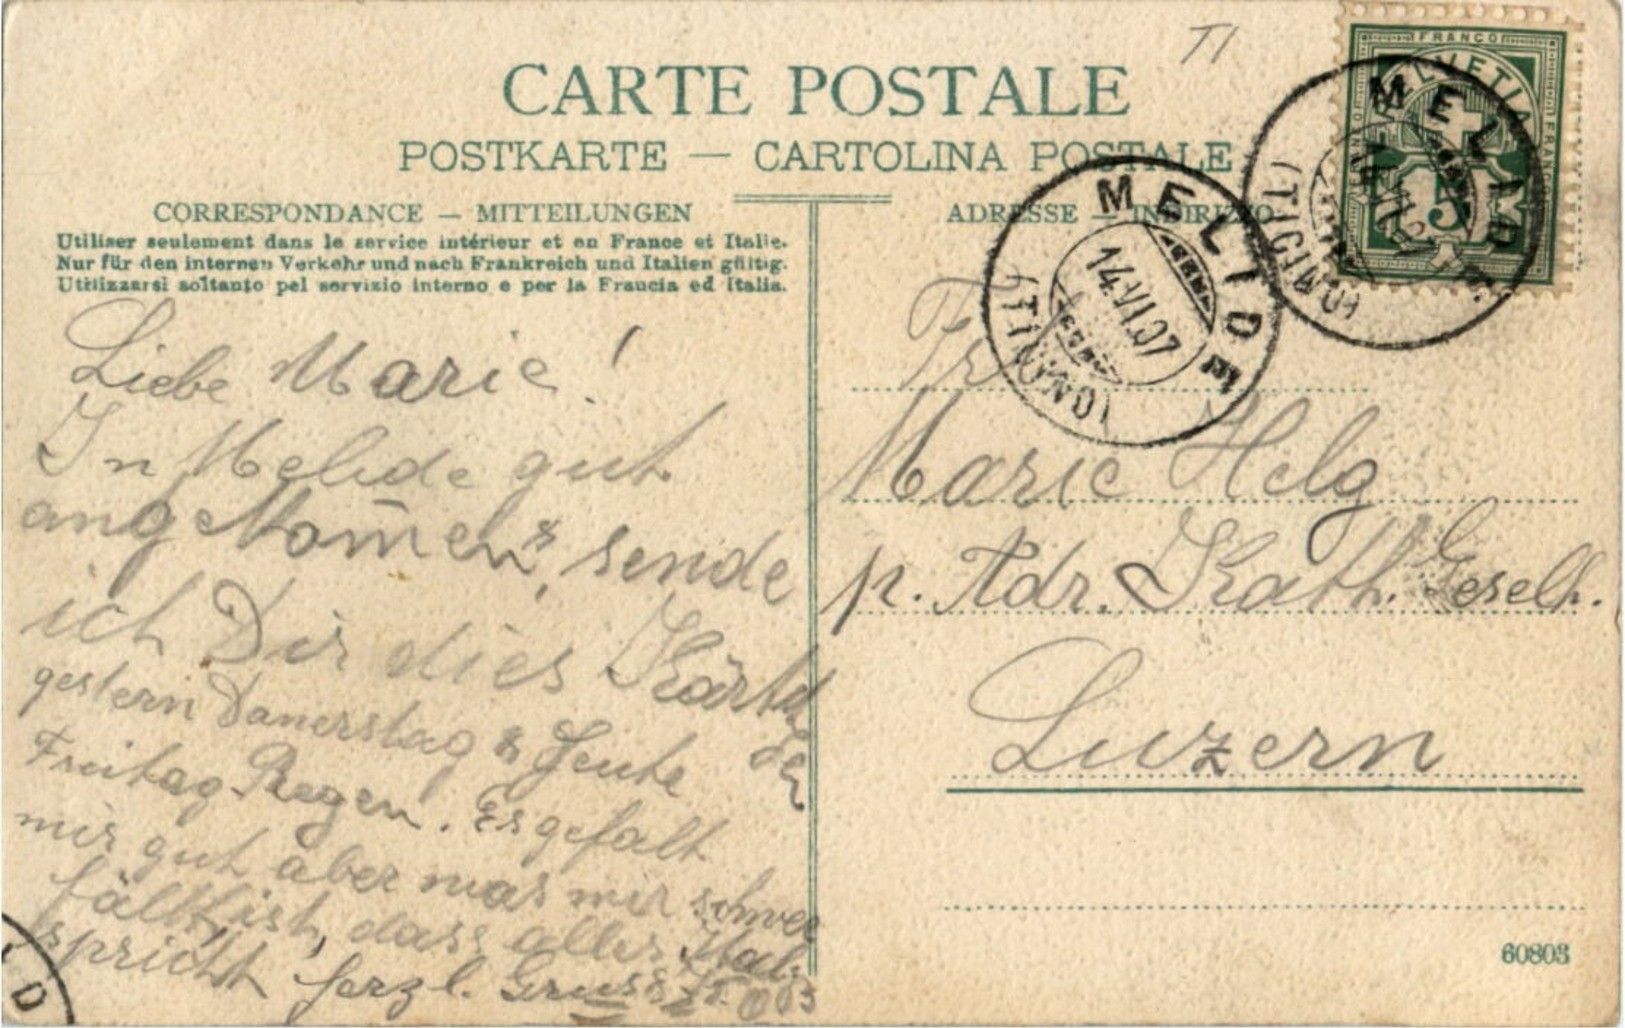 TI
CARTE POSTALE
POSTKARTE — CARTOLINA POSTALE
CORRESPONDANCE — MITTEILUNGEN
Utiliser seulement dans le service intérieur et en France et Italie.
Nur für den internen Verkehr und nach Frankreich und Italien gültig.
Utilizzarsi soltanto pel servizio interno e per la Francia ed Italia.
Liebe Marie!
In Melide gut
angekom̄en, sende
ich Dir dies Kärtch
en
gestern Danerstag & Heute
Freitag Regen. Es gefalt
mir gut aber was mir schwer
fällt, ist, dass alles Ital.
spricht herzl. Gruss
ADRESSE — INDIRIZZO
Frl
Marie Helg
p. Adr. Kath. Gesellh.
Luzern
60803
FRANCO
HELVETIA
5
MELIDE
(TICINO)
MELIDE
14.VI.07
(TICINO)
D